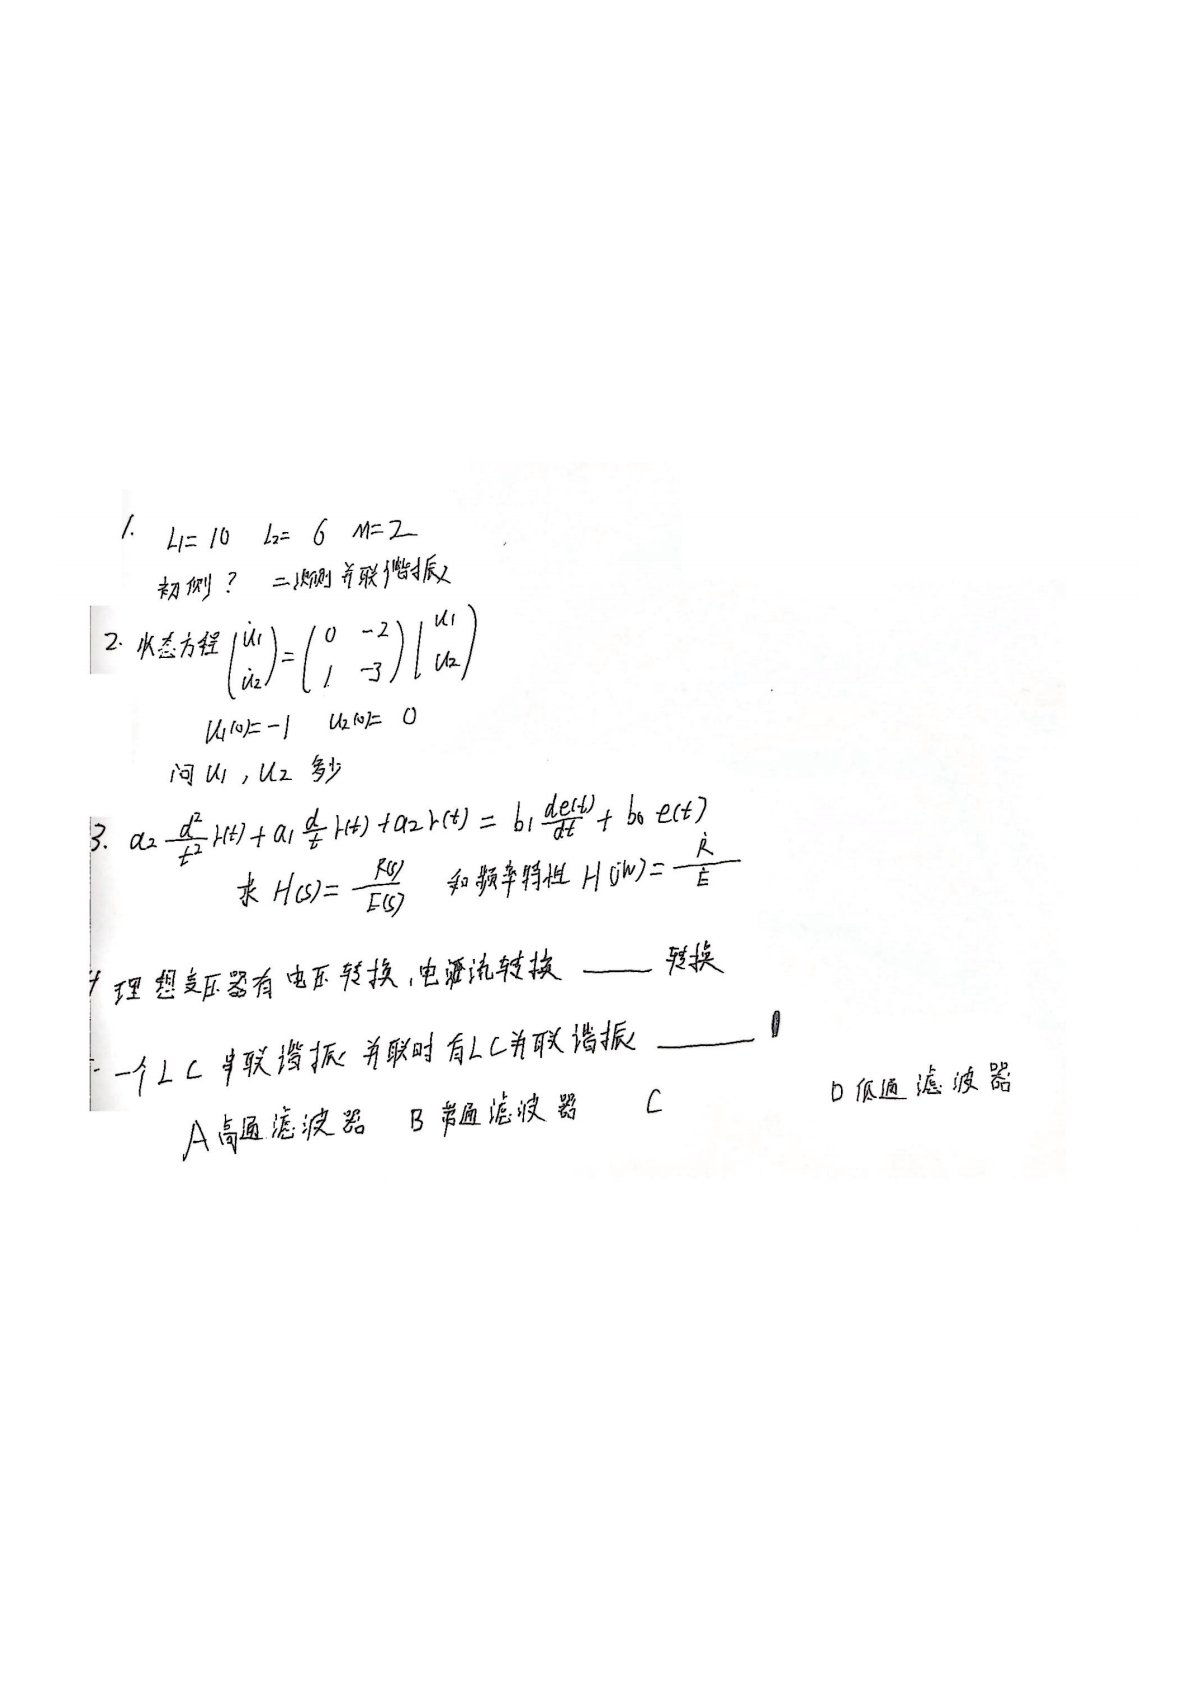 1. L1=10 L2=6 M=2
初侧? 二次侧并联谐振
2. 状态方程 (u̇1 u̇2) = (0 -2 1 -3) (u1 u2)
u1(0)=-1 u2(0)=0
问 u1, u2 多少
3. a2 d²/t² r(t) + a1 d/t r(t) + a2 r(t) = b1 de(t)/dt + b0 e(t)
求 H(s)= R(s)/E(s) 和频率特性 H(jw)= Ṙ/Ė
4 理想变压器有电压转换,电流转换 ____ 转换
一个LC串联谐振 并联时有LC并联谐振 ____
A高通滤波器 B 带通滤波器 C D 低通滤波器